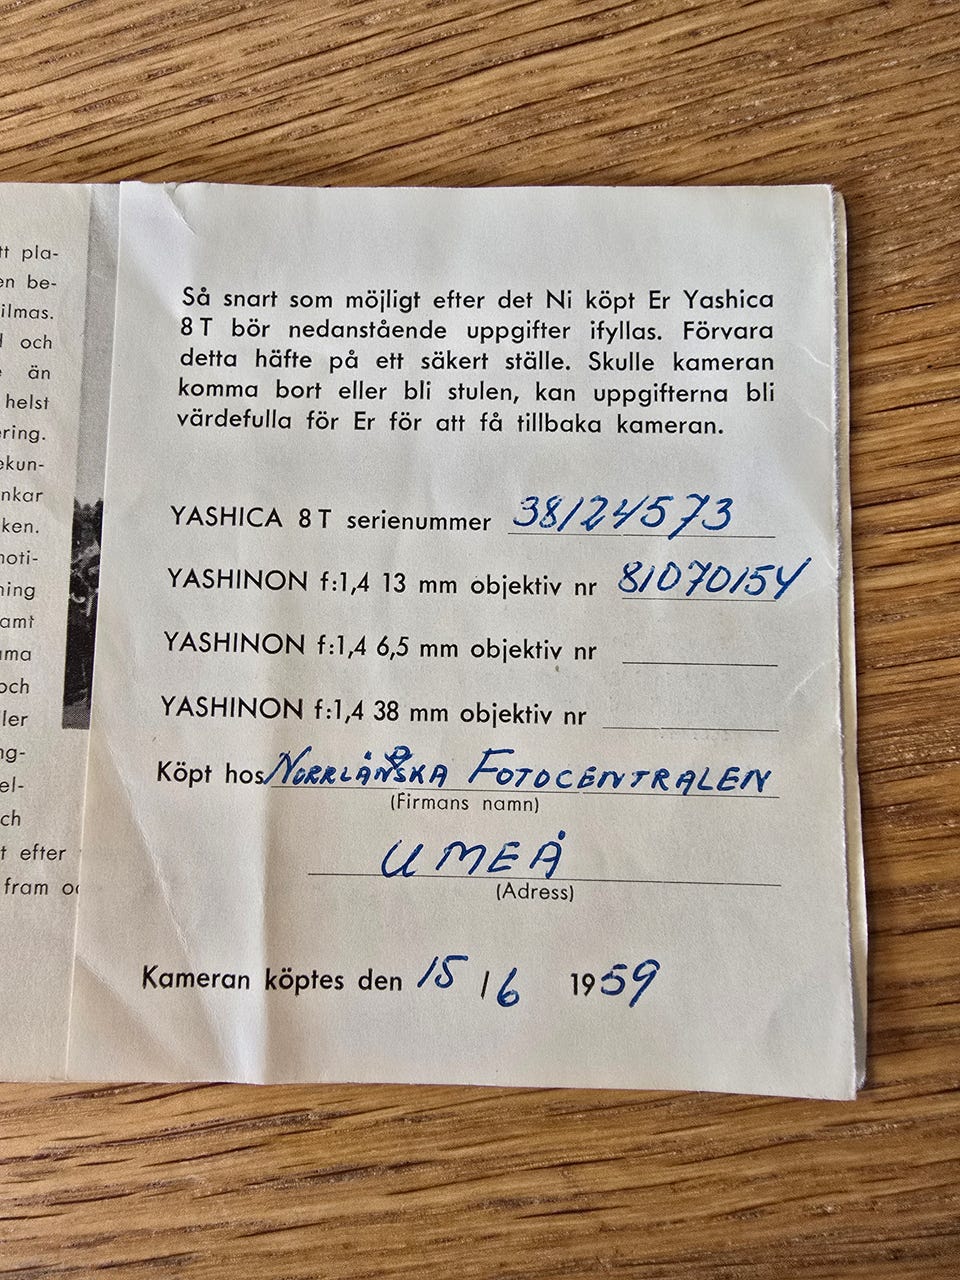 tt pla-
en be-
ilmas.
d och
e än
helst
ering.
ekun-
nkar
ken.
noti-
ning
amt
ma
och
ler
ng-
el-
ch
t efter
fram oc
Så snart som möjligt efter det Ni köpt Er Yashica
8 T bör nedanstående uppgifter ifyllas. Förvara
detta häfte på ett säkert ställe. Skulle kameran
komma bort eller bli stulen, kan uppgifterna bli
värdefulla för Er för att få tillbaka kameran.
YASHICA 8 T serienummer 38124573
YASHINON f:1,4 13 mm objektiv nr 81070154
YASHINON f:1,4 6,5 mm objektiv nr
YASHINON f:1,4 38 mm objektiv nr
Köpt hos NORRLÄNDSKA FOTOCENTRALEN
(Firmans namn)
UMEÅ
(Adress)
Kameran köptes den 15 / 6 1959